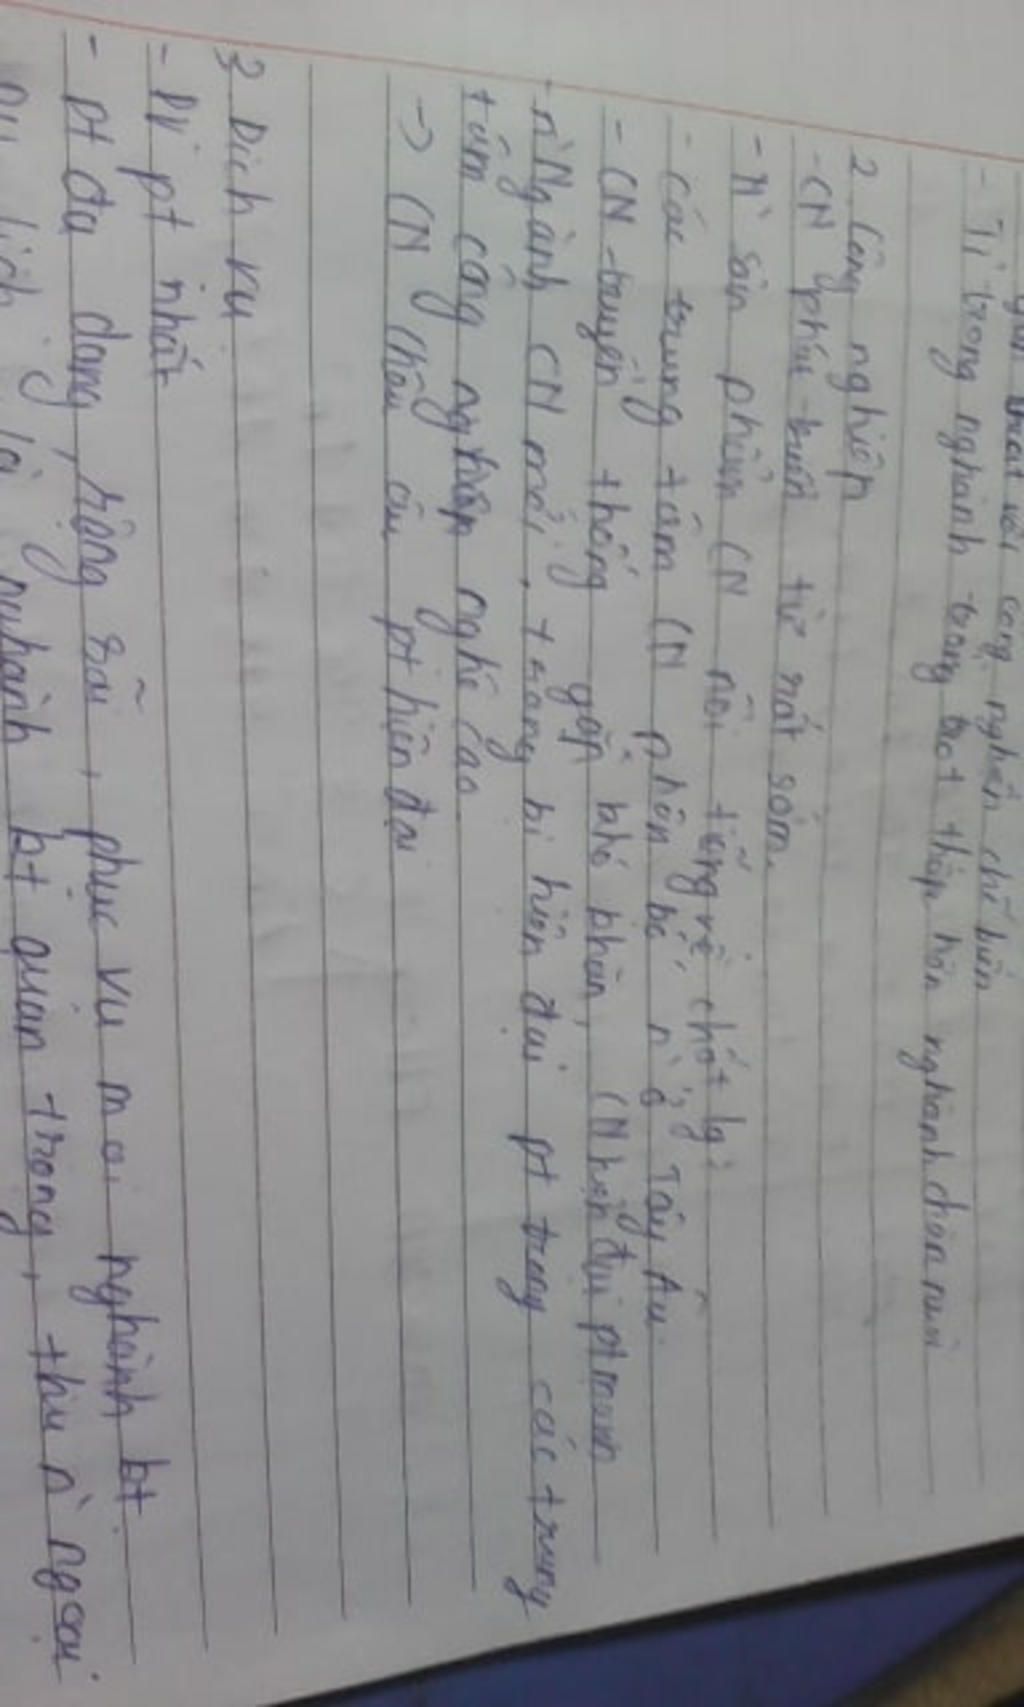 thuật với công nghiệp chế biến
- Tỉ trọng nghành trồng trọt thấp hơn nghành chăn nuôi
2 Công nghiệp
- CN phát triển từ rất sớm.
- N` sản phẩm CN nổi tiếng về chất lg
- Các trung tâm CN phân bố n` ở Tây Âu.
- CN truyền thống gặp khó khăn, CN hiện đại pt mạnh
- n` Ngành CN mới, trang bị hiện đại pt trong các trung
tâm công nghiệp nghệ cao
-> CN Châu Âu pt hiện đại
3 Dịch vụ
- DV pt nhất
- Pt đa dạng, rộng rãi, phục vụ mọi nghành kt.
Du lịch là nghành kt quan trọng, thu n` ngoại